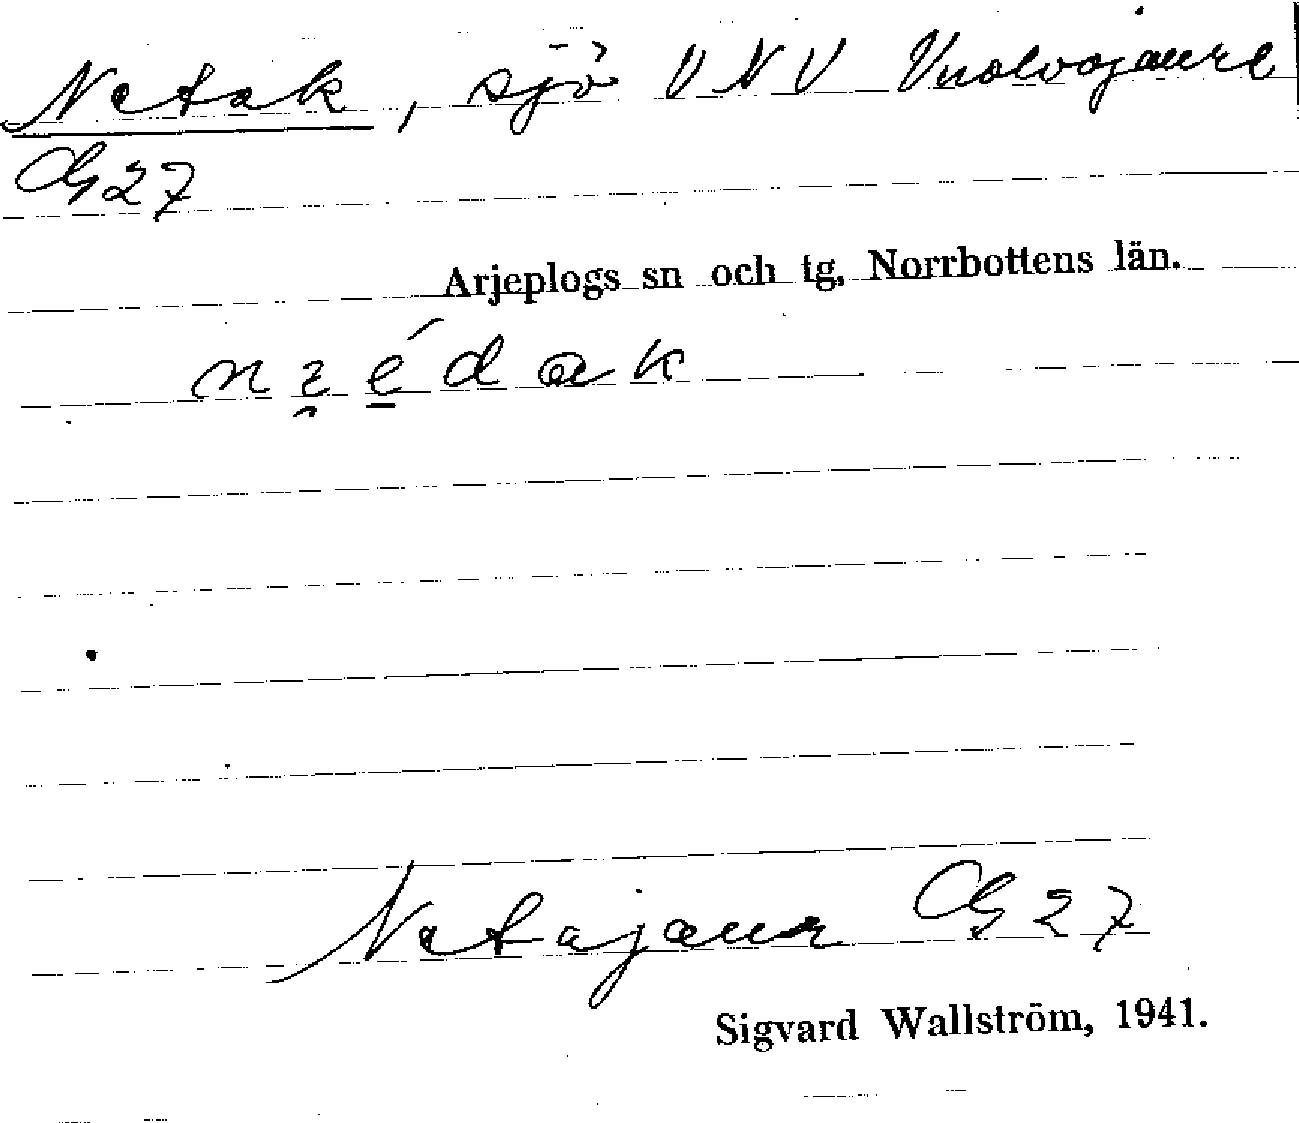 Netak, sjö VNV Vuolvojaure
CG 27
Arjeplogs sn och tg, Norrbottens län.
Netajaur CG 27
Sigvard Wallström, 1941.